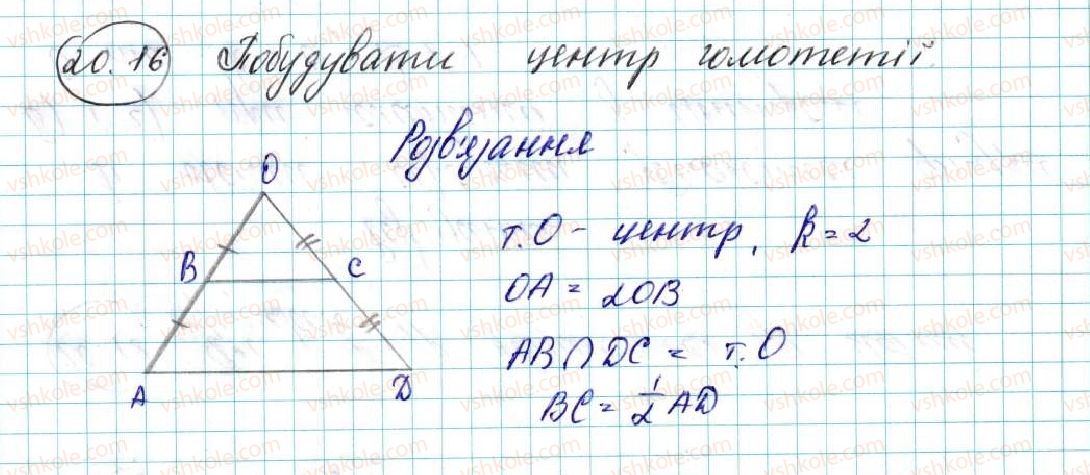 20.16 Побудувати центр гомотетії.
Розв'язання
O
B
C
A
D
т.O - центр, k=2
OA = 2OB
AB ∩ DC = т.O
BC = 1/2 AD